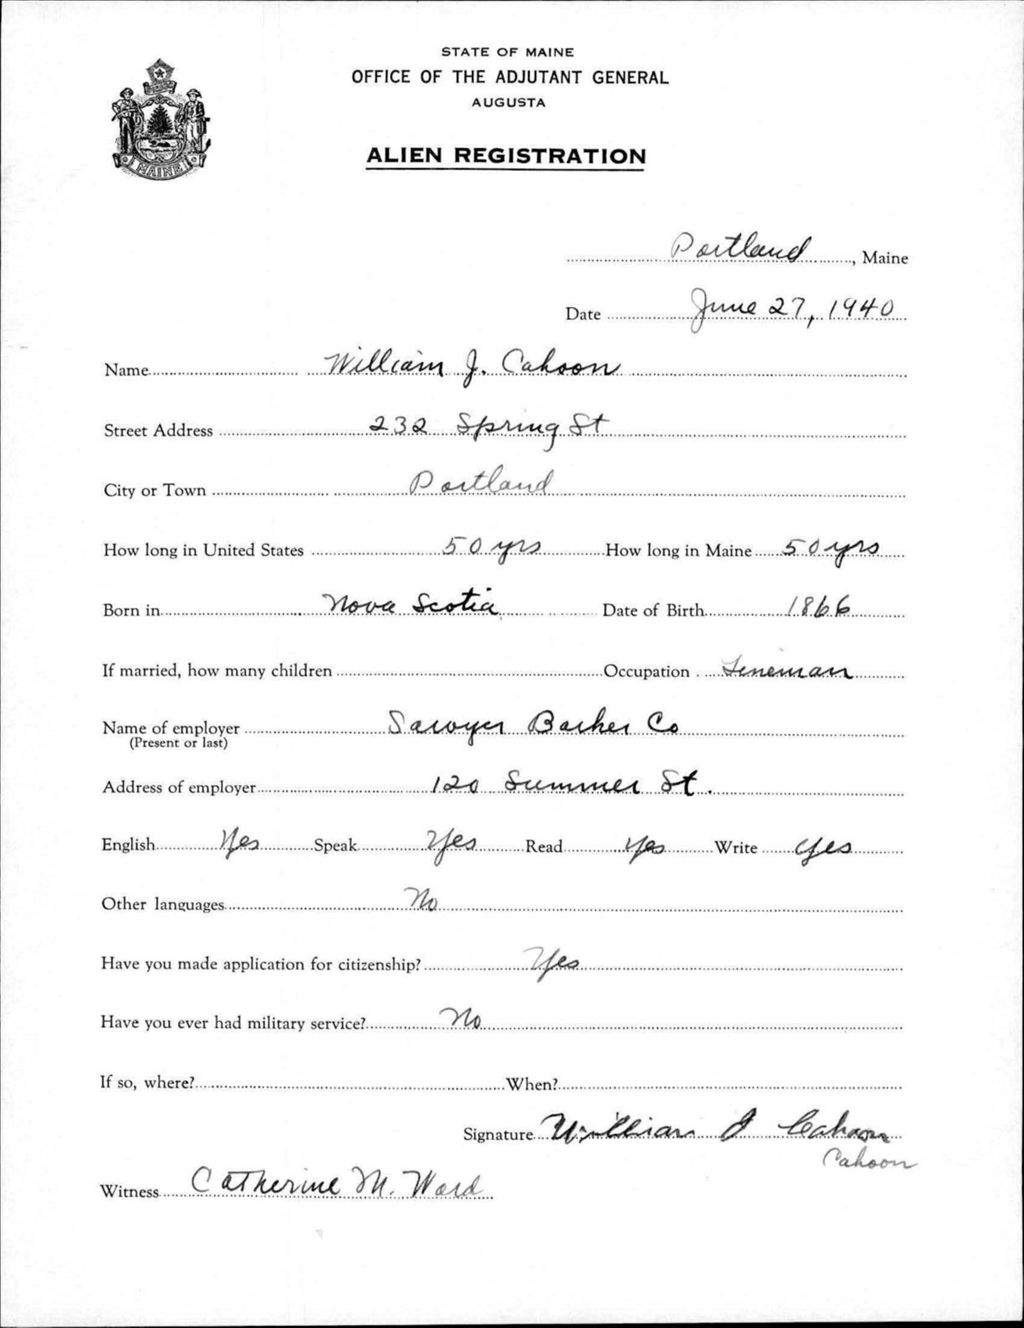 STATE OF MAINE
OFFICE OF THE ADJUTANT GENERAL
AUGUSTA
ALIEN REGISTRATION
MAINE
Portland, Maine
Date June 27, 1940
Name William J. Cahoon
Street Address 232 Spring St
City or Town Portland
How long in United States 50 yrs How long in Maine 50 yrs
Born in Nova Scotia Date of Birth 1866
If married, how many children Occupation Lineman
Name of employer Sawyer Barker Co
(Present or last)
Address of employer 120 Summer St.
English Yes Speak Yes Read yes Write yes
Other languages No
Have you made application for citizenship? Yes
Have you ever had military service? No
If so, where? When?
Signature William J Cahoon
Cahoon
Witness Catherine M. Ward